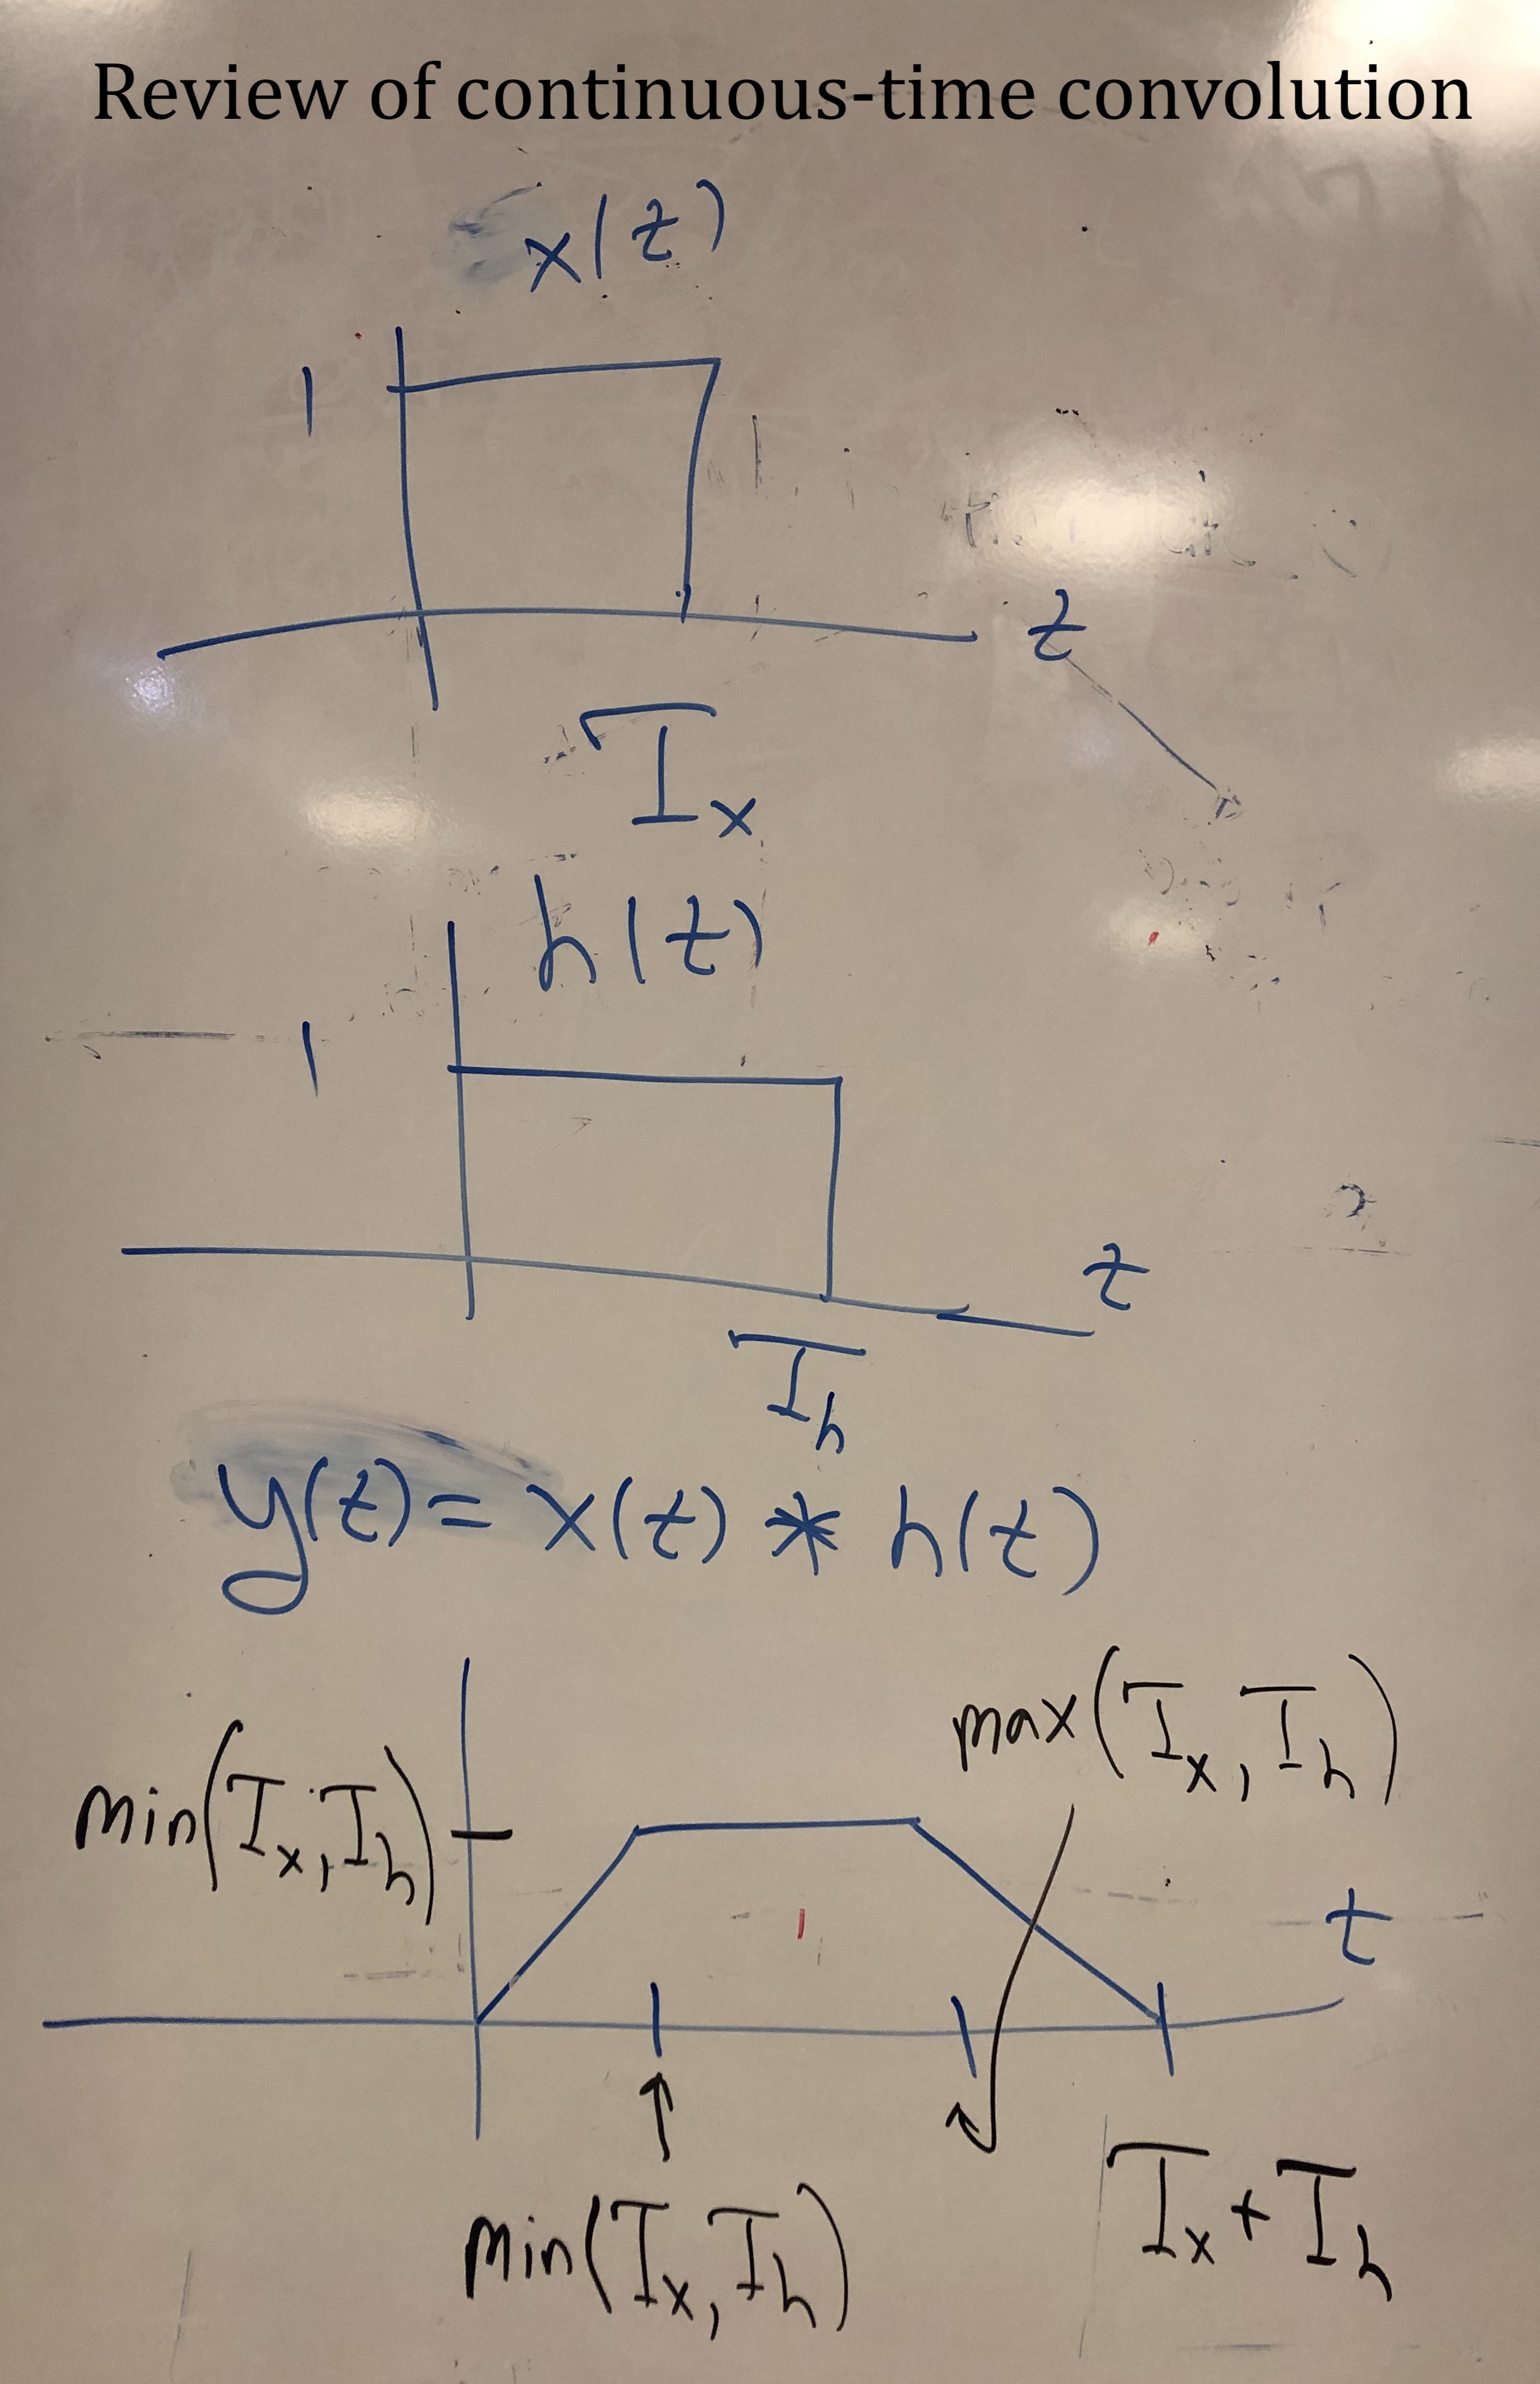 Review of continuous-time convolution
x(t)
1
t
Tx
h(t)
1
t
Th
y(t) = x(t) * h(t)
max(Tx, Th)
min(Tx, Th)
t
min(Tx, Th)
Tx + Th